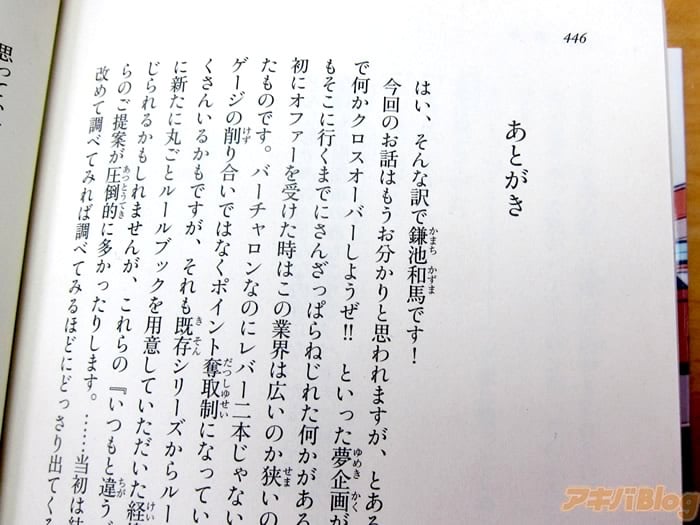 446
あとがき
はい、そんな訳で鎌池和馬です!
今回のお話はもうお分かりと思われますが、とある
で何かクロスオーバーしようぜ!! といった夢企画が
もそこに行くまでにさんざっぱらねじれた何かがある
初にオファーを受けた時はこの業界は広いのか狭いの
たものです。バーチャロンなのにレバー二本じゃない
ゲージの削り合いではなくポイント奪取制になってい
くさんいるかもですが、それも既存シリーズからルー
に新たに丸ごとルールブックを用意していただいた経
じられるかもしれませんが、これらの『いつもと違う
らのご提案が圧倒的に多かったりします。……当初は
改めて調べてみれば調べてみるほどにどっさり出てく
思って
アキバBlog